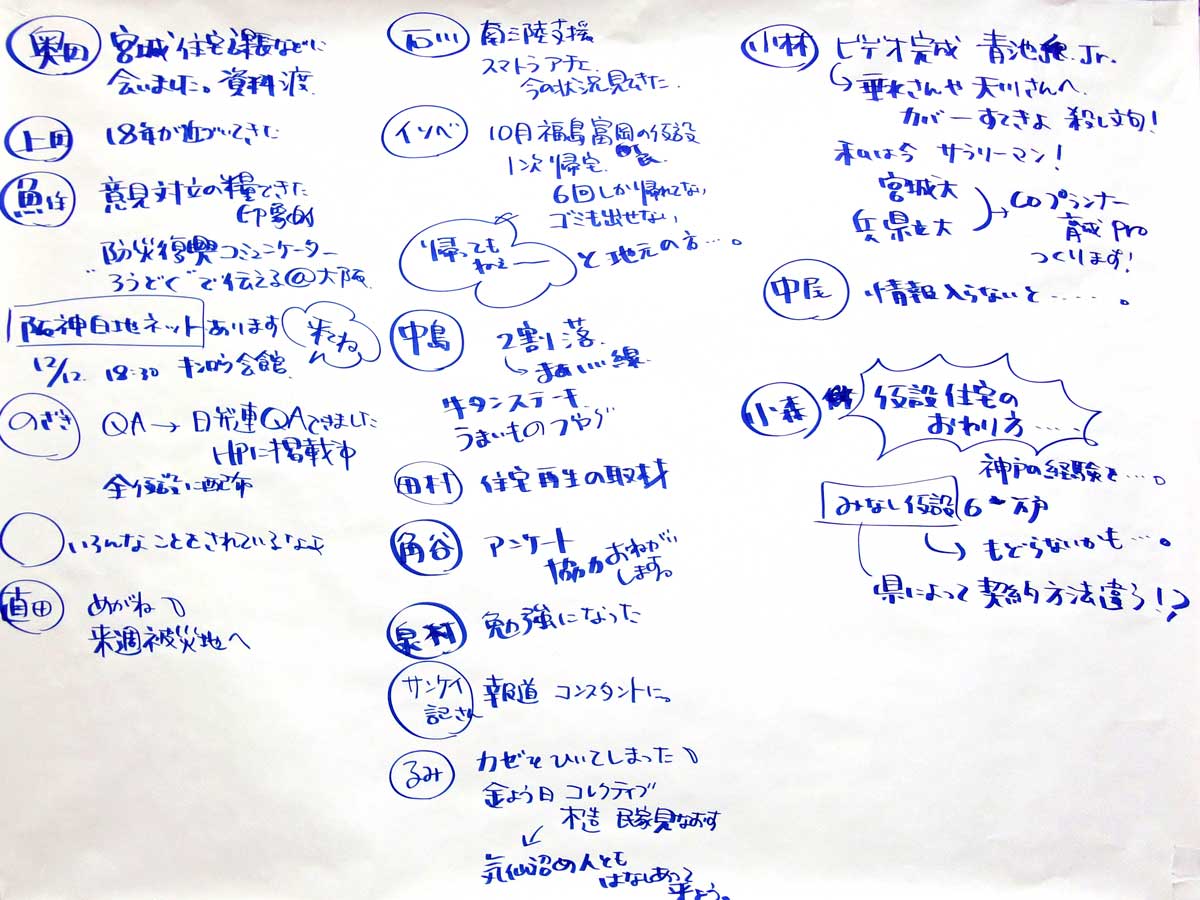 奥田 宮城住宅課長などに
会いました。資料渡
上田 18年が近づいてきた
魚住 意見対立の糧できた
印象的
防災復興コミュニケーター
"ろうどく"で伝える@大阪
阪神白地ネット あります 来てねん
12/12. 18:30 キンロウ会館
のざき QA→日弁連QAできました
HPに掲載中
全仮設に配布
いろんなことをされているなァ
直田 めがね
来週被災地へ
石川 南三陸支援
スマトラアチェ
今の状況見てきた.
イソベ 10月福島富岡の仮設
1次帰宅. 町民
6回しか帰れてない
ゴミも出せない
帰ってもねぇー と地元の方…。
中島 2割落.
まあいい線.
牛タンステーキ.
うまいものツヤグ
田村 住宅再生の取材
角谷 アンケート
協力おねがい
します。
泉村 勉強になった
サンケイ記さん 報道 コンスタントに。
るみ カゼをひいてしまった
金よう日 コレクティブ
木造 民家見なおす
気仙沼の人とも
はなしあって
来よう。
小林 ビデオ完成 青池 Jr.
垂水さんや天川さんへ.
カバーすてきよ 殺し文句!
私は今 サラリーマン!
宮城大
兵県立大
COプランナー
育成Pro
つくります!
中尾 情報入らないと……。
小森 仮設住宅の
おわり方….
神戸の経験を…。
みなし仮設 6 万戸
もどらないかも…。
県によって契約方法違う!?